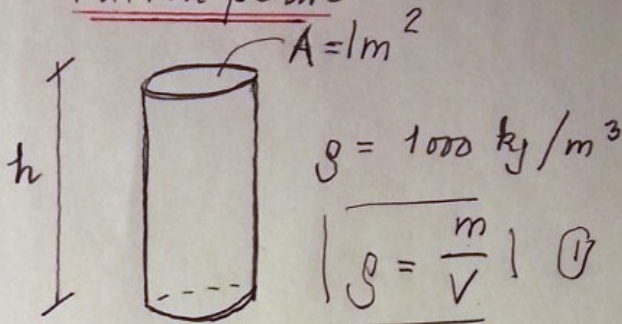 A = 1m²
h
ρ = 1000 kg/m³
| ρ = m/V | ①